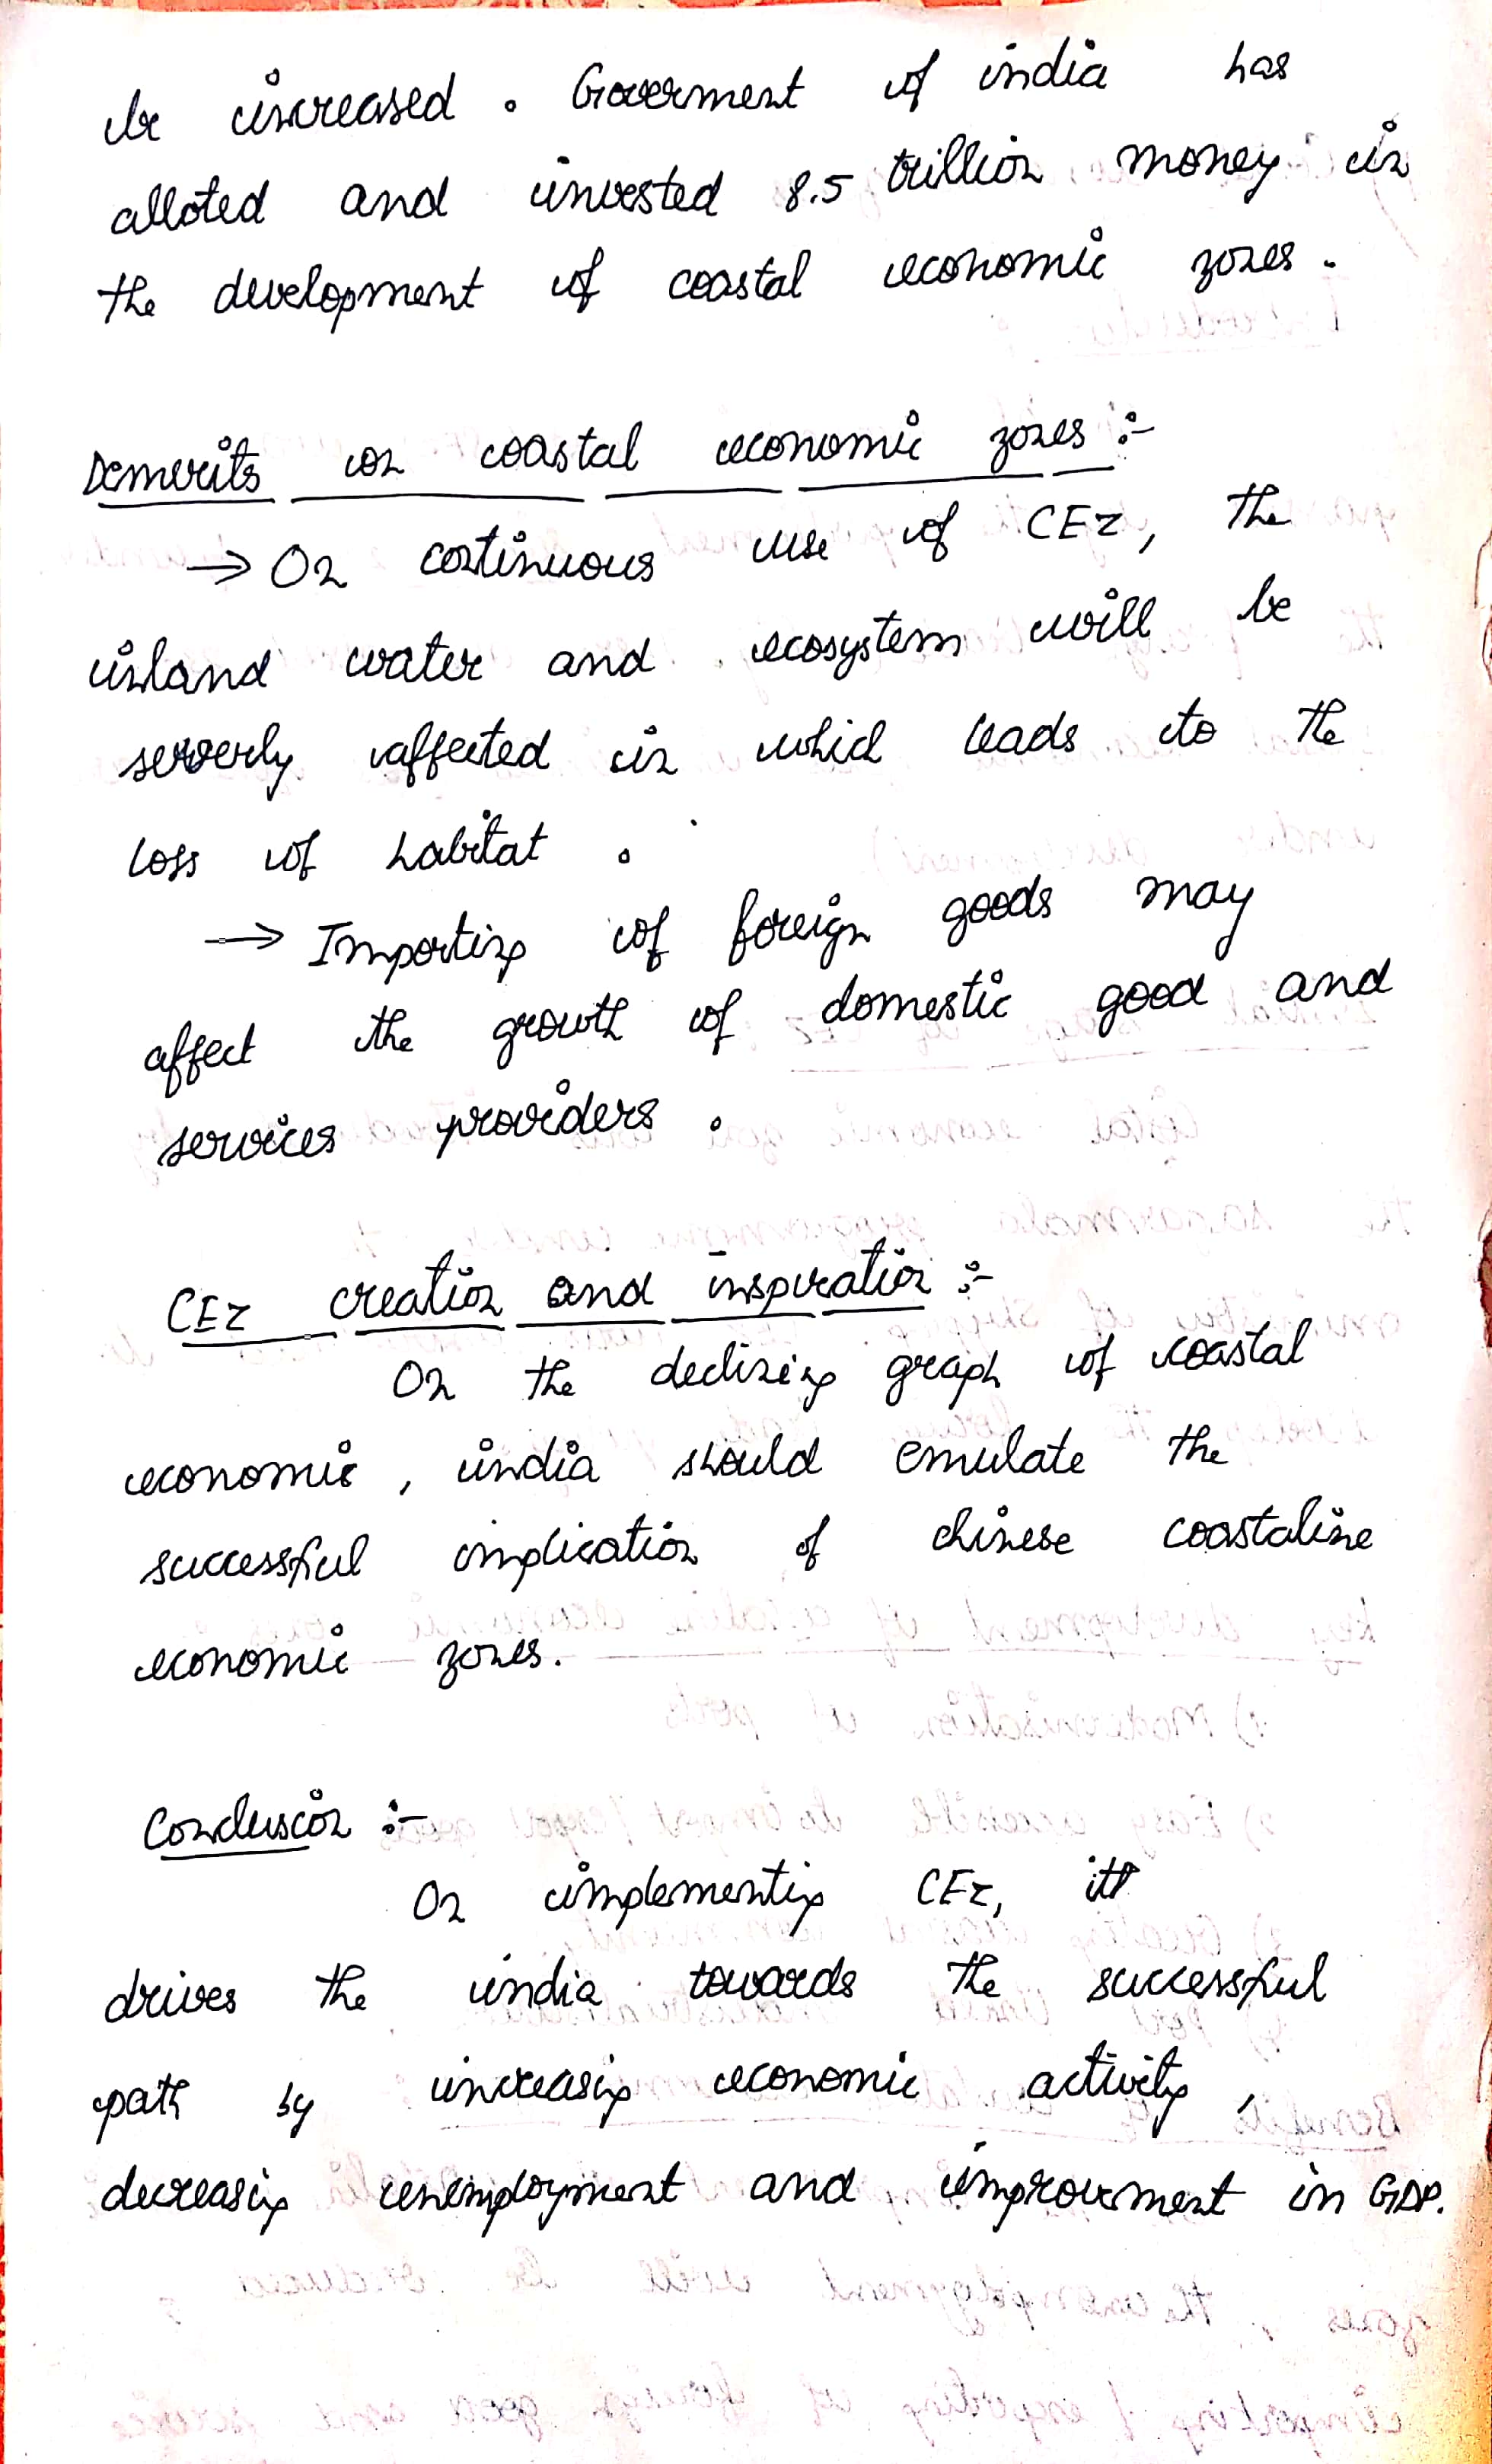 be increased. Goverment of india has
alloted and invested 8.5 trillion money in
the development of coastal economic zones.
Demerits on coastal economic zones :-
→ On continuous use of CEZ, the
inland water and ecosystem will be
serverly affected in which leads to the
loss of habitat.
→ Importing of foreign goods may
affect the growth of domestic good and
services providers.
CEZ creation and inspiration :-
On the declining graph of coastal
economic, india should emulate the
successful implication of chinese coastaline
economic zones.
Conclusion :-
On implementing CEZ, it
drives the india towards the successful
path by increasing economic activity,
decreasing unemployment and improvement in GDP.